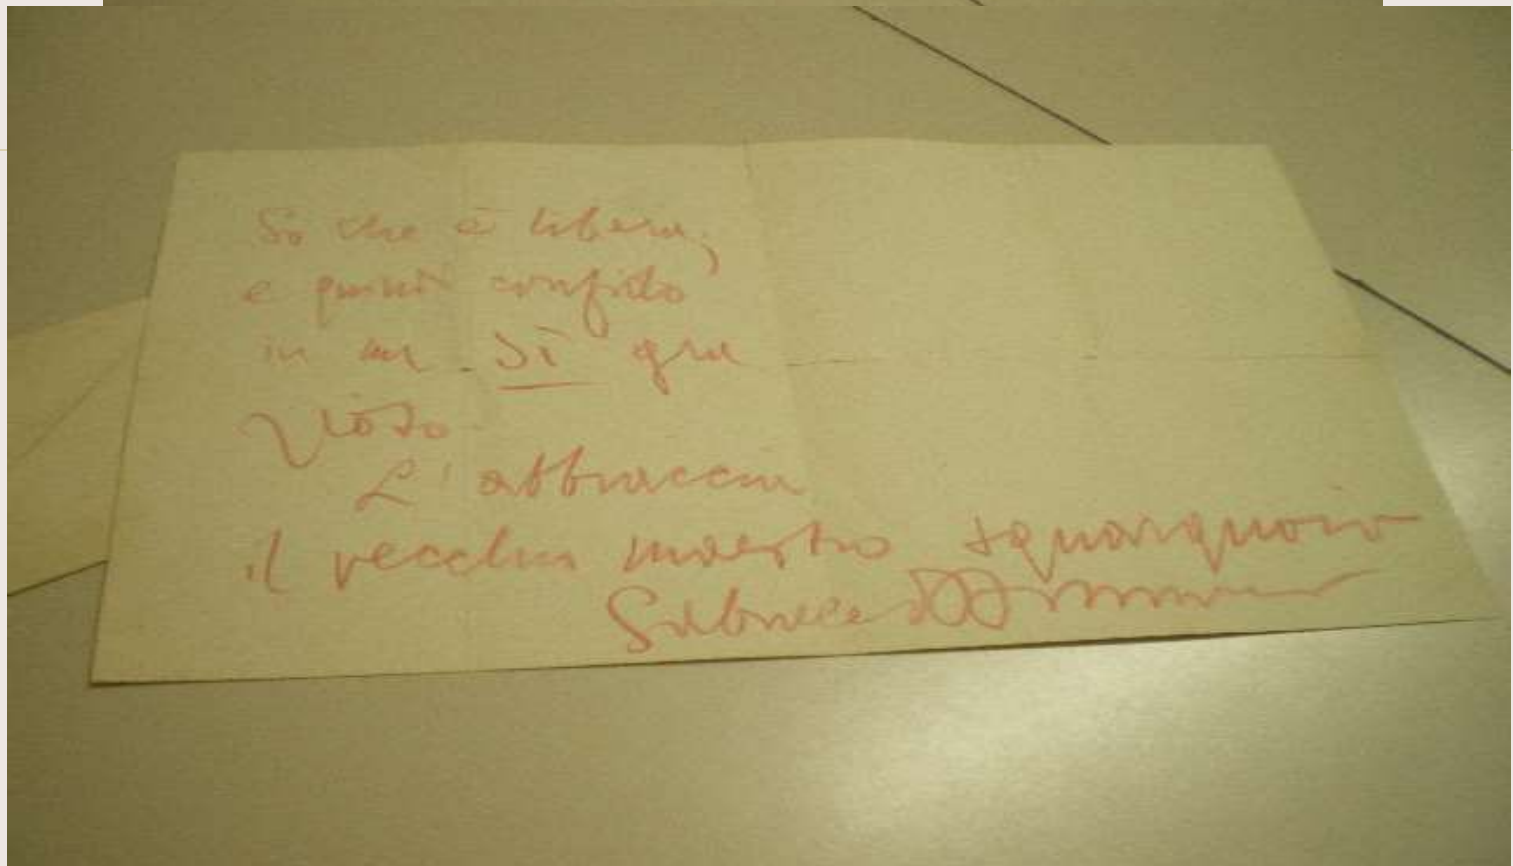 So che è libera,
e quindi confido
in un SÌ gra
zioso.
L'abbraccia
il vecchio maestro squarquoio
Gabriele D'Annunzio